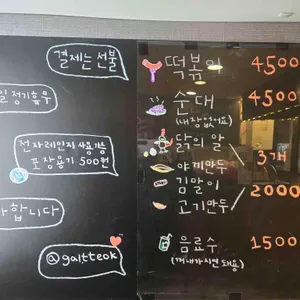 결제는 선불
일 정기휴무
전자레인지 사용가능
포장용기 500원
합니다
@galtteok
떡볶이 4500
순대 4500
(내장없어요)
닭의 알
야끼만두
김말이
고기만두
3개
2000
음료수 1500
(꺼내가시면 돼용)